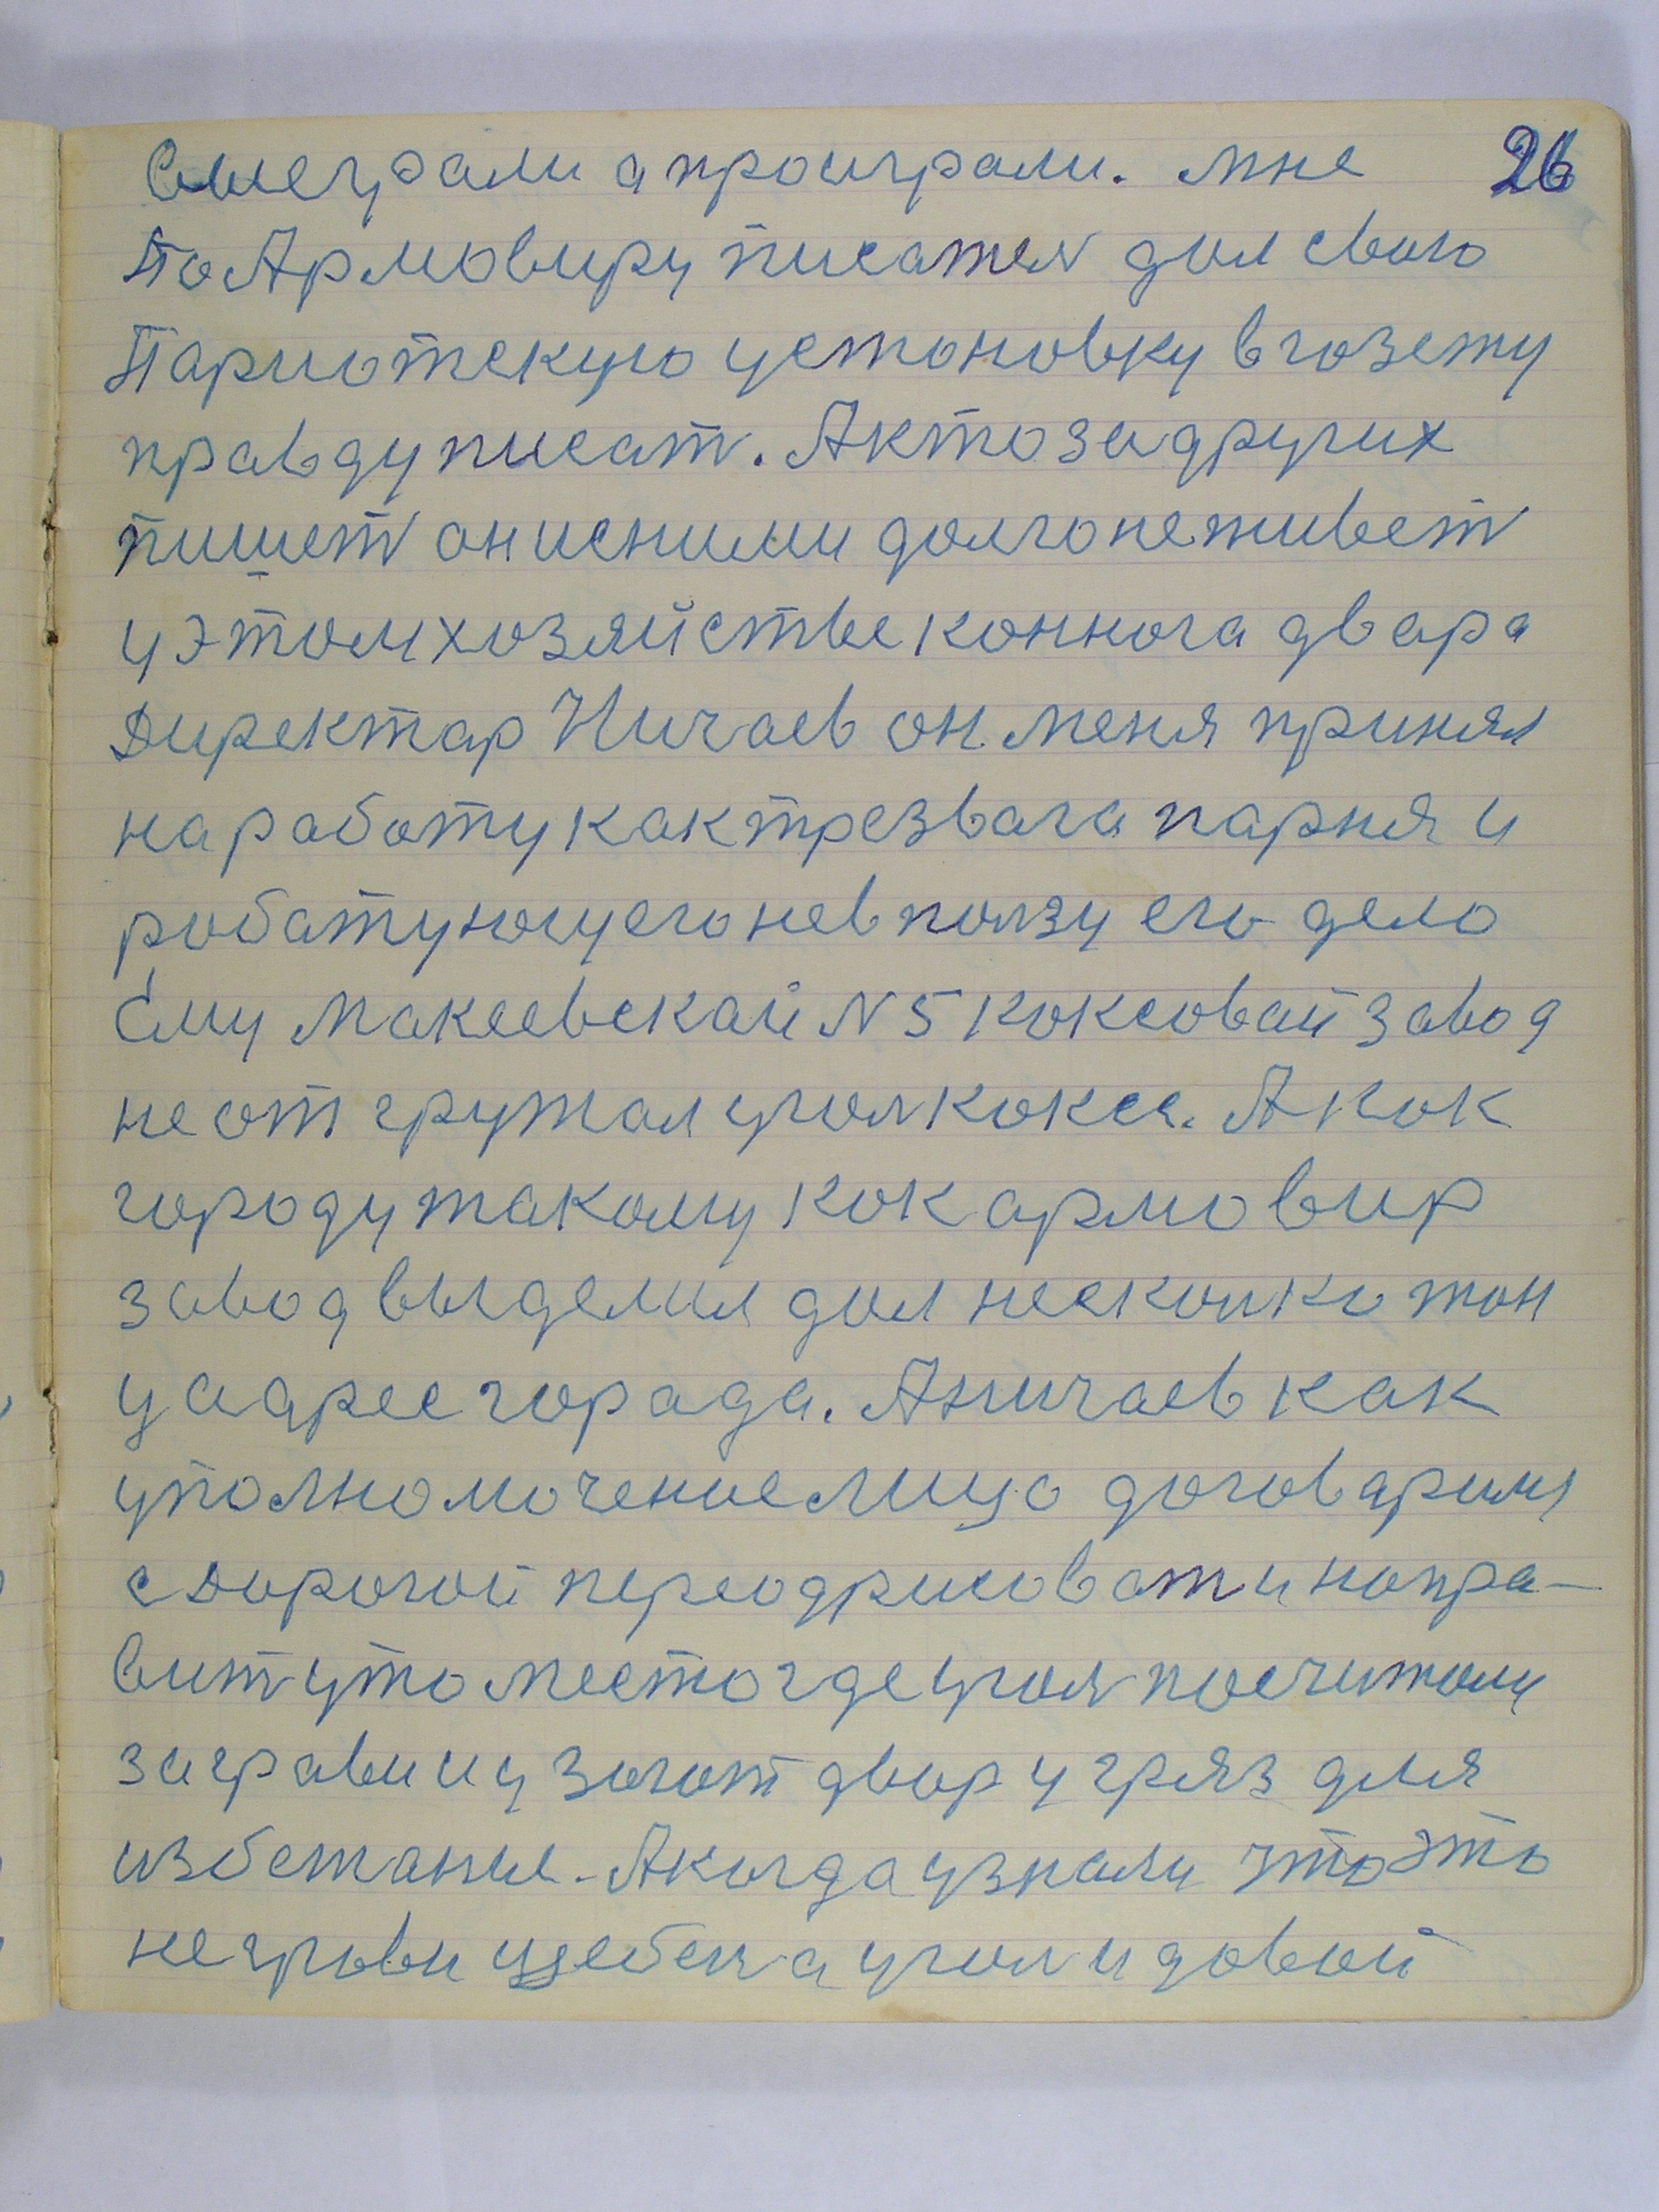 Выеграли а проиграли. мне 26
По Армовиру писател дал свою
Париотскую устоновку в гозету
правду писат. А кто за других
пишет он и сними долго не живет
у этом хозяйстве коннога двара
Директар Ничаев он меня принял
на работу как трезвага парня и
работующего не в ползу его дело
Ему Макеевскай N5 коксовай завод
не отгружал угол кокса. А как
городу такому как армовир
завод выделил дал несколко тон
у адрес горада. А ничаев как
уполномочение лицо договарился
с дорогой переодрисоват и напра-
вит у то место где угол посчитали
за грави и у загот двор у гряз для
избежание. А когда узнали что это
не грави щебен а угол и давай